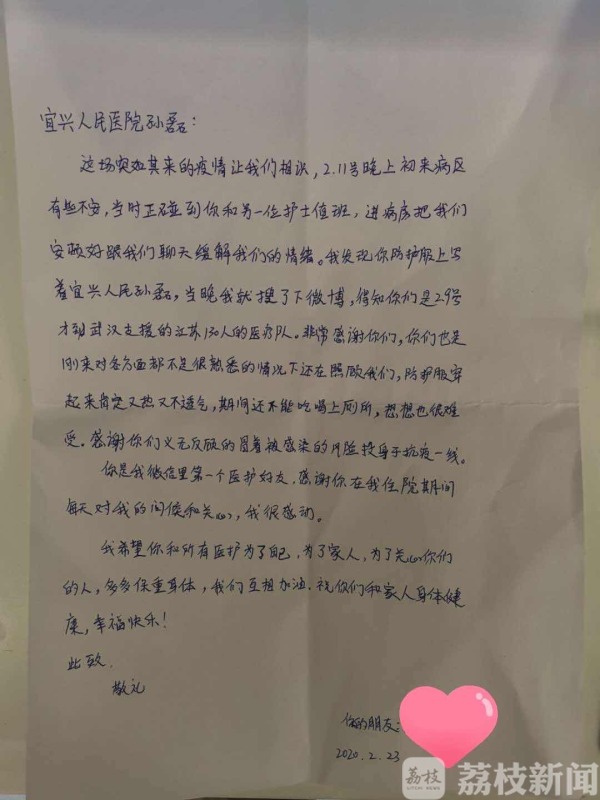 宜兴人民医院孙磊:
这场突如其来的疫情让我们相识,2.11号晚上初来病区
有些不安,当时正碰到你和另一位护士值班,进病房把我们
安顿好跟我们聊天缓解我们的情绪。我发现你防护服上写
着宜兴人民孙磊,当晚我就搜了下微博,得知你们是2.9号
才到武汉支援的江苏130人的医疗队。非常感谢你们,你们也是
刚来对各方面都不是很熟悉的情况下还在照顾我们,防护服穿
起来肯定又热又不透气,期间还不能吃喝上厕所,想想也很难
受。感谢你们义无反顾的冒着被感染的风险投身于抗疫一线。
你是我微信里第一个医护好友.感谢你在我住院期间
每天对我的问候和关心,我很感动。
我希望你和所有医护为了自己,为了家人,为了关心你们
的人,多多保重身体,我们互相加油.祝你们和家人身体健
康,幸福快乐!
此致.
敬礼
你的朋友:
2020.2.23
荔枝
LITCHI NEWS
荔枝新闻